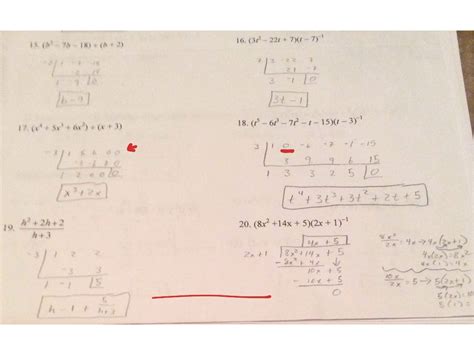 15. (h² − 7h − 18) ÷ (h + 2)
-2 | 1 -7 -18
-2 18
1 -9 | 0
h - 9
16. (3t² − 22t + 7)(t − 7)⁻¹
7 | 3 -22 7
21 -7
3 -1 | 0
3t - 1
17. (x⁴ + 5x³ + 6x²) ÷ (x + 3)
-3 | 1 5 6 0 0
-3 -6 0 0
1 2 0 0 | 0
x³ + 2x
18. (t⁵ − 6t³ − 7t² − t − 15)(t − 3)⁻¹
3 | 1 0 -6 -7 -1 -15
3 9 9 6 15
1 3 3 2 5 | 0
t⁴ + 3t³ + 3t² + 2t + 5
19. h² + 2h + 2
h + 3
-3 | 1 2 2
-3 3
1 -1 | 5
h - 1 + 5
h+3
20. (8x² + 14x + 5)(2x + 1)⁻¹
4x + 5
2x + 1 | 8x² + 14x + 5
- 8x² + 4x
10x + 5
- 10x + 5
0
8x²
2x = 4x → 4x(2x+1)
4x(2x) = 8x²
4x(1) = 4x
10x
2x = 5 → 5(2x+1)
5(2x) = 10
5(1) =